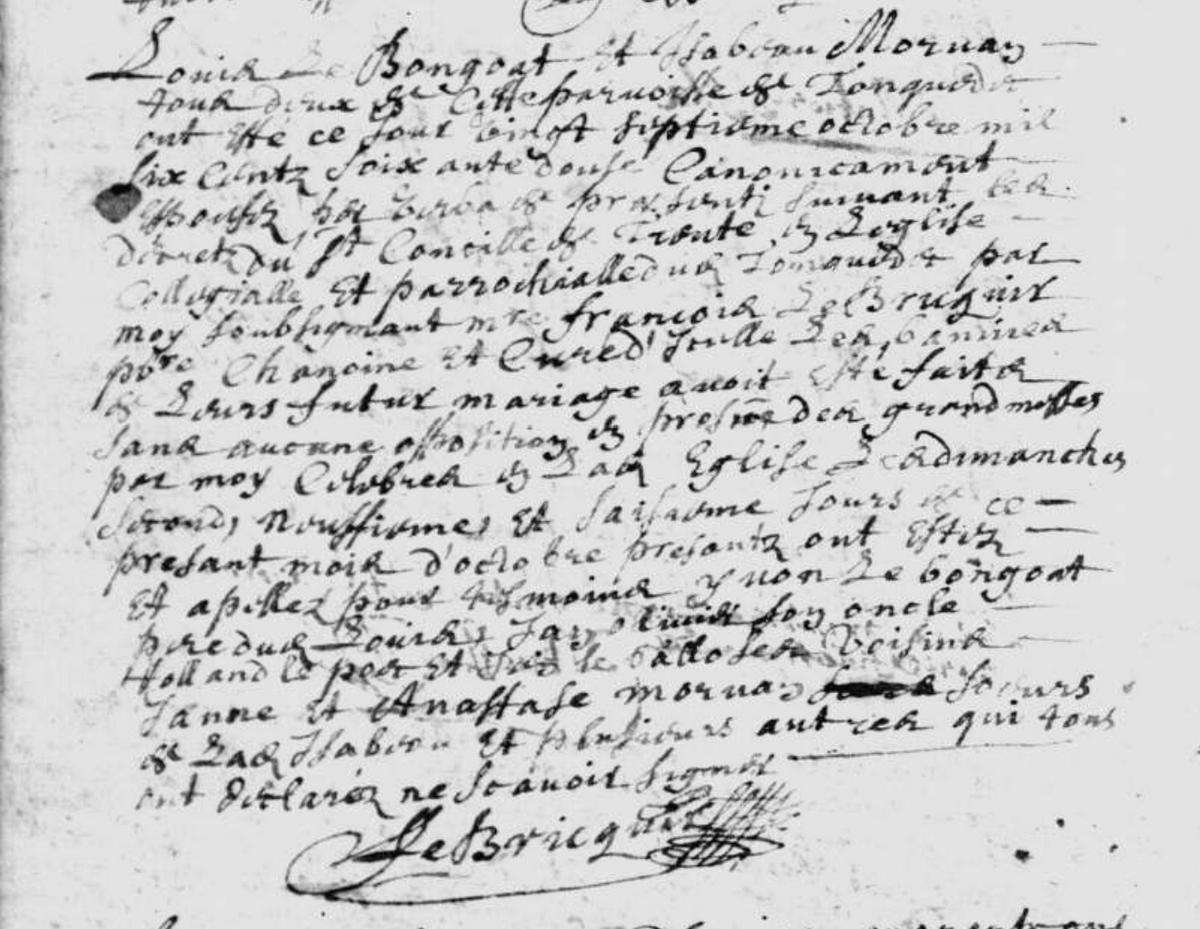 Louis Le Bongoat Et Isabeau Morvan
tous deux de Cette parroisse de Tonquedec
ont esté ce Jour vingt septiesme octobre mil
six Centz soixante douse Canonicament
Espousez per verba de præsenti suivant les
decretz du St Concille de Trente en L'eglise
Collegialle Et parrochialle dud Tonquedec par
moy soubsignant mre françois Le Bricquir
pbre Chanoine Et Curé d'Icelle Les bannies
de Leurs futur mariage avoit Esté faites
sans aucune opposition en prosne des grand messes
par moy Celebrées en Lad Eglise Les dimanches
second, neuffieme, Et saisieme Jours de ce
presant mois d'octobre presantz ont Estez
Et apellez pour tesmoins yvon Le bongoat
pere dud Louis, Jan olivier son oncle
Rolland le per Et le voisins
Janne Et Anastase morvan soeurs
de Lad Isabeau Et plusieurs autres qui tous
ont declarez ne scavoir signer
Le Bricquir